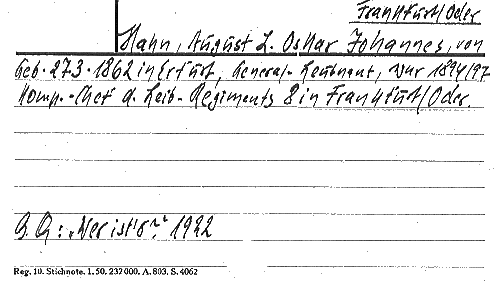 Frankfurt/Oder
Hahn, August L. Oskar Johannes, von
Geb. 27.3.1862 in Erfurt, General-Leutnant, war 1894/97
Komp.-Chef d. Leib-Regiments 8 in Frankfurt/Oder.
B. Q.: „Wer ist's?" 1922
Reg. 10. Stichnote. 1. 50. 232000. A. 803. S. 4062